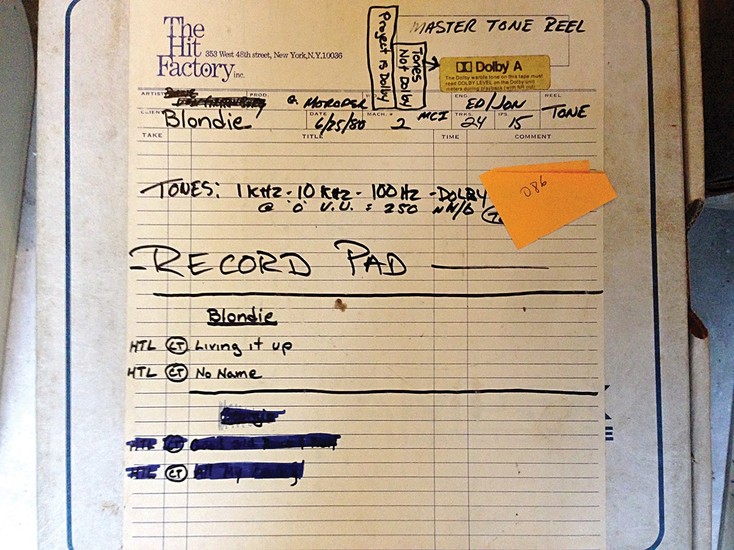 The
Hit
Factory inc.
353 West 48th street, New York, N.Y. 10036
MASTER TONE REEL
Project is Dolby
Tones
Not Dolby
Dolby A
The Dolby warble tone on this tape must
read DOLBY LEVEL on the Dolby unit
meters during playback (with NR out)
ARTIST PROD. G. MORODER ENG. ED/JON REEL TONE
CLIENT Blondie DATE 6/25/80 MACH. # 2 MCI TRKS. 24 IPS 15
TAKE TITLE TIME COMMENT
TONES: 1 KHz - 10 KHz - 100 Hz - DOLBY
@ '0' V.U. = 250 nW/b
086
- RECORD PAD -
Blondie
HTL CT Living it up
HTL CT No Name
HTL CT
HTL CT